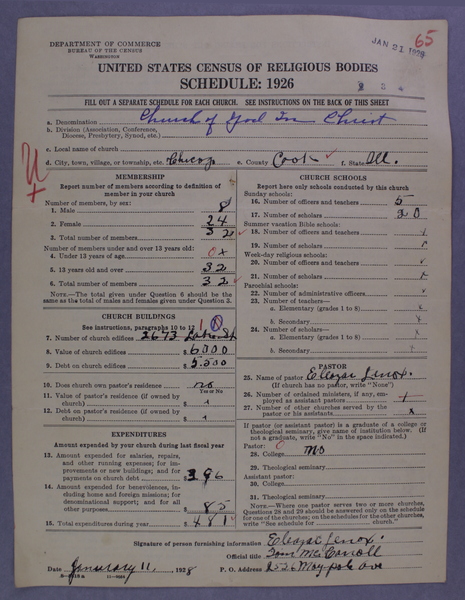 DEPARTMENT OF COMMERCE
BUREAU OF THE CENSUS
WASHINGTON
JAN 21 1928
65
UNITED STATES CENSUS OF RELIGIOUS BODIES
SCHEDULE: 1926
FILL OUT A SEPARATE SCHEDULE FOR EACH CHURCH. SEE INSTRUCTIONS ON THE BACK OF THIS SHEET
a. Denomination Church of God In Christ
b. Division (Association, Conference, Diocese, Presbytery, Synod, etc.)
c. Local name of church
d. City, town, village, or township, etc. Chicago e. County Cook f. State Ill.
MEMBERSHIP
Report number of members according to definition of member in your church
Number of members, by sex:
1. Male 8
2. Female 24
3. Total number of members 32
Number of members under and over 13 years old:
4. Under 13 years of age 0 x
5. 13 years old and over 32
6. Total number of members 32
NOTE.—The total given under Question 6 should be the same as the total of males and females given under Question 3.
CHURCH BUILDINGS
See instructions, paragraphs 10 to 12
7. Number of church edifices 2673
8. Value of church edifices $ 6000
9. Debt on church edifices $ 5.500
10. Does church own pastor's residence? no
Yes or No
11. Value of pastor's residence (if owned by church) $
12. Debt on pastor's residence (if owned by church) $
EXPENDITURES
Amount expended by your church during last fiscal year
13. Amount expended for salaries, repairs, and other running expenses; for improvements or new buildings; and for payments on church debt $ 396
14. Amount expended for benevolences, including home and foreign missions; for denominational support; and for all other purposes $ 85
15. Total expenditures during year $ 481
CHURCH SCHOOLS
Report here only schools conducted by this church
Sunday schools:
16. Number of officers and teachers 5
17. Number of scholars 20
Summer vacation Bible schools:
18. Number of officers and teachers x
19. Number of scholars x
Week-day religious schools:
20. Number of officers and teachers x
21. Number of scholars x
Parochial schools:
22. Number of administrative officers x
23. Number of teachers—
a. Elementary (grades 1 to 8) x
b. Secondary x
24. Number of scholars—
a. Elementary (grades 1 to 8) x
b. Secondary x
PASTOR
25. Name of pastor Eleazar Lenox.
(If church has no pastor, write "None")
26. Number of ordained ministers, if any, employed as assistant pastors
27. Number of other churches served by the pastor or his assistants x
If pastor (or assistant pastor) is a graduate of college or theological seminary, give name of institution below. (If not a graduate, write "No" in the space indicated.)
Pastor: 0
28. College no
29. Theological seminary
Assistant pastor:
30. College
31. Theological seminary
NOTE.—Where one pastor serves two or more churches, Questions 28 and 29 should be answered only on the schedule for one of the churches; on the schedules for the other churches, write "See schedule for ____ church."
Signature of person furnishing information Eleazar Lenox.
Official title
Date January 11, 1928 P. O. Address 2526 Maypole ave